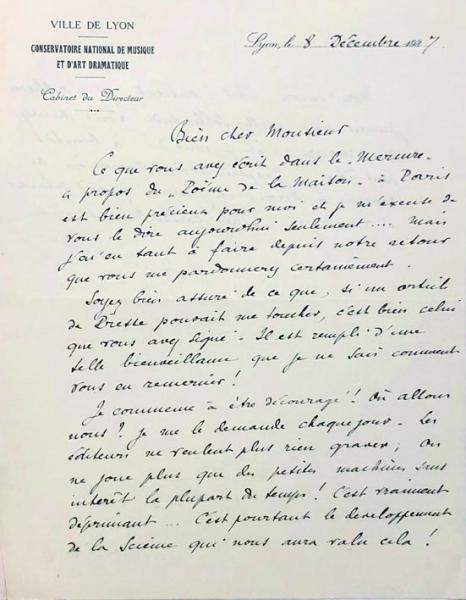 VILLE DE LYON
CONSERVATOIRE NATIONAL DE MUSIQUE
ET D'ART DRAMATIQUE
Cabinet du Directeur
Lyon, le 8 Décembre 7
Bien cher Monsieur
Ce que vous avez écrit dans le Mercure -
a propos du "Poème de la Maison" à Paris
est bien précieux pour moi et je m'excuse de
vous le dire aujourd'hui seulement .... Mais
j'ai eu tant à faire depuis notre retour
que vous me pardonnerez certainement.
Soyez bien assuré de ce que, si un article
de Presse pouvait me toucher, c'est bien celui
que vous avez signé - Il est rempli d'une
telle bienveillance que je ne sais comment
vous en remercier !
Je commence à être découragé ! Où allons
nous ? je me le demande chaque jour - Les
éditeurs ne veulent plus rien graver ; On
ne joue plus que des petites machines sans
intérêt la plupart du temps ! C'est vraiment
déprimant ... C'est pourtant le développement
de la Science qui nous aura valu cela !